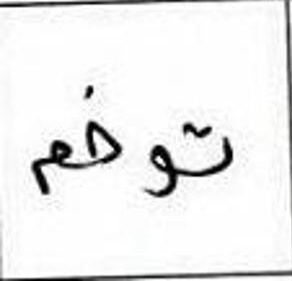 توخم